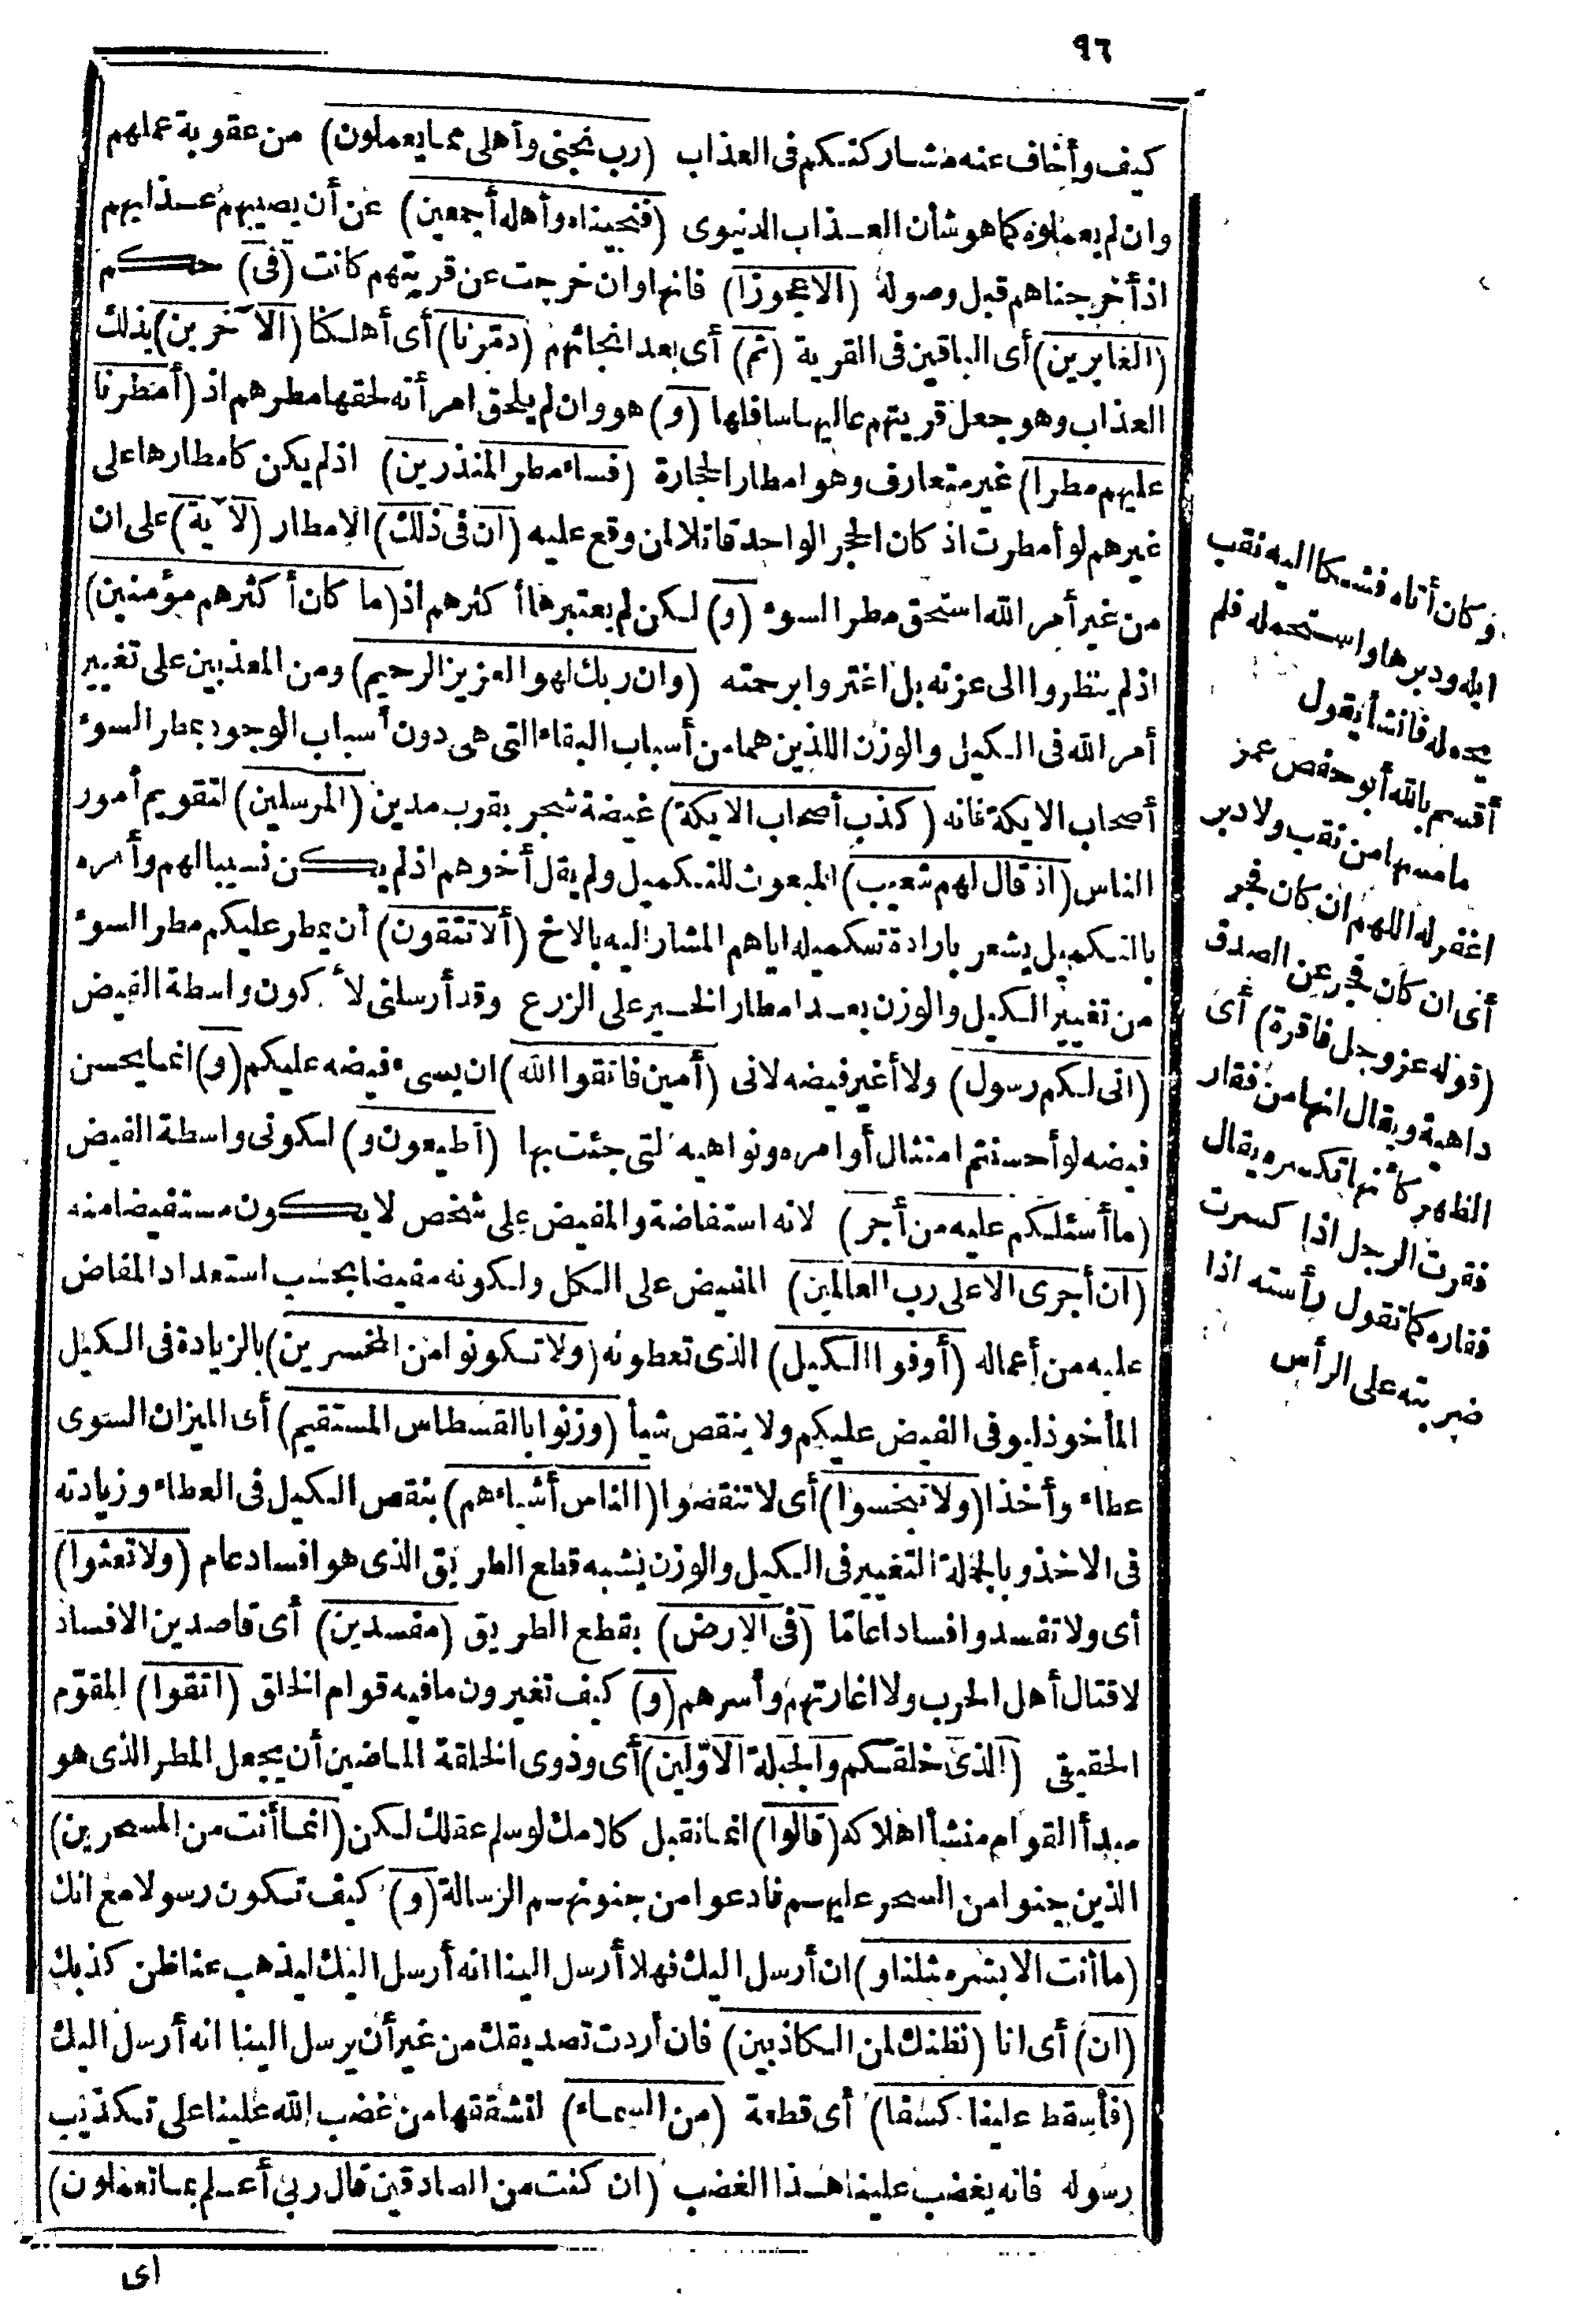 ٩٦
كيف وأخاف عنه مشاركتكم فى العذاب (رب نجنى وأهلى مما يعملون) من عقوبة عملهم
وان لم يعملوه كما هو شأن العذاب الدنيوى (فنجيناه وأهله أجمعين) عن أن يصيبهم عذابهم
اذ أخرجناهم قبل وصوله (الا عجوزا) فانها وان خرجت عن قريتهم كانت (فى) حكم
(الغابرين) أى الباقين فى القرية (ثم) أى بعد انجائهم (دمّرنا) أى أهلكنا (الآخرين) بذلك
العذاب وهو جعل قريتهم عاليها سافلها (و) هو وان لم يلحق امرأته لحقها مطرهم اذ (أمطرنا
عليهم مطرا) غير متعارف وهو امطار الحجارة (فساء مطر المنذرين) اذ لم يكن كامطارها على
غيرهم لو أمطرت اذ كان الحجر الواحد قاتلا لمن وقع عليه (ان فى ذلك) الامطار (لآية) على ان
من غير أمر الله استحق مطر السوء (و) لكن لم يعتبر هاأ كثرهم اذ (ما كان أكثرهم مؤمنين)
اذ لم ينظروا الى عزته بل اغتروا برحمته (وان ربك لهو العزيز الرحيم) ومن المعذبين على تغيير
أمر الله فى الكيل والوزن اللذين هما من أسباب البقاء التى هى دون أسباب الوجود بمطر السوء
أصحاب الايكة فانه (كذب أصحاب الايكة) غيضة شجر بقرب مدين (المرسلين) لتقويم أمور
الناس (اذ قال لهم شعيب) المبعوث للتكميل ولم يقل أخوهم اذ لم يكن نسيبا لهم وأمره
بالتكميل يشعر بارادة تكميله اياهم المشار اليه بالاخ (ألا تتقون) أن يمطر عليكم مطر السوء
من تغيير الكيل والوزن بعد امطار الخير على الزرع وقد أرسلنى لأكون واسطة الفيض
(انى لكم رسول) ولا أغير فيضه لانى (أمين فاتقوا الله) ان يسىء فيضه عليكم (و) انما يحسن
فيضه لو أحسنتم امتثال أوامره ونواهيه التى جئت بها (أطيعون و) لكونى واسطة الفيض
(ما أسئلكم عليه من أجر) لانه استفاضة والمفيض على شخص لا يكون مستفيضا منه
(ان أجرى الا على رب العالمين) المفيض على الكل ولكونه مفيضا بحسب استعداد المفاض
عليه من أعماله (أوفوا الكيل) الذى تعطونه (ولا تكونوا من المخسرين) بالزيادة فى الكيل
المأخوذ ليوفى الفيض عليكم ولا ينقص شيأ (وزنوا بالقسطاس المستقيم) أى الميزان السوى
عطاء وأخذا (ولا تبخسوا) أى لا تنقصوا (الناس أشياءهم) بنقص الكيل فى العطاء وزيادته
فى الاخذ وبالجملة التغيير فى الكيل والوزن يشبه قطع الطريق الذى هو افساد عام (ولا تعثوا)
أى ولا تفسدوا افسادا عامّا (فى الارض) بقطع الطريق (مفسدين) أى قاصدين الافساد
لا قتال أهل الحرب ولا اغارتهم وأسرهم (و) كيف تغيرون ما فيه قوام الخلق (اتقوا) المقوّم
الحقيقى (الذى خلقكم والجبلة الاوّلين) أى وذوى الخلقة الماضين أن يجعل المطر الذى هو
مبدأ القوام منشأ اهلاكه (قالوا) انما نقبل كلامك لو سلم عقلك لكن (انما أنت من المسحرين)
الذين جنوا من السحر عليهم فادعوا من جنونهم الرسالة (و) كيف تكون رسولا مع انك
(ما أنت الا بشر مثلنا و) ان أرسل اليك فهلا أرسل الينا انه أرسل اليك ليذهب عنا ظن كذبك
(ان) أى انا (نظنك لمن الكاذبين) فان أردت تصديقك من غير أن يرسل الينا انه أرسل اليك
(فأسقط علينا كسفا) أى قطعة (من السماء) لتشققها من غضب الله علينا على تكذيب
رسوله فانه يغضب علينا هذا الغضب (ان كنت من الصادقين قال ربى أعلم بما تعملون)
اى
وكان أتاه فشكا اليه نقب
ابله ودبرها واستحمله فلم
يحمله فانشأ يقول
أقسم بالله أبو حفص عمر
ما مسها من نقب ولا دبر
اغفر له اللهم ان كان فجر
أى ان كان فجر عن الصدق
(قوله عز وجل فاقرة) أى
داهية ويقال انها من فقار
الظهر كأنها تكسره يقال
فقرت الرجل اذا كسرت
فقاره كما تقول رأسته اذا
ضربته على الرأس